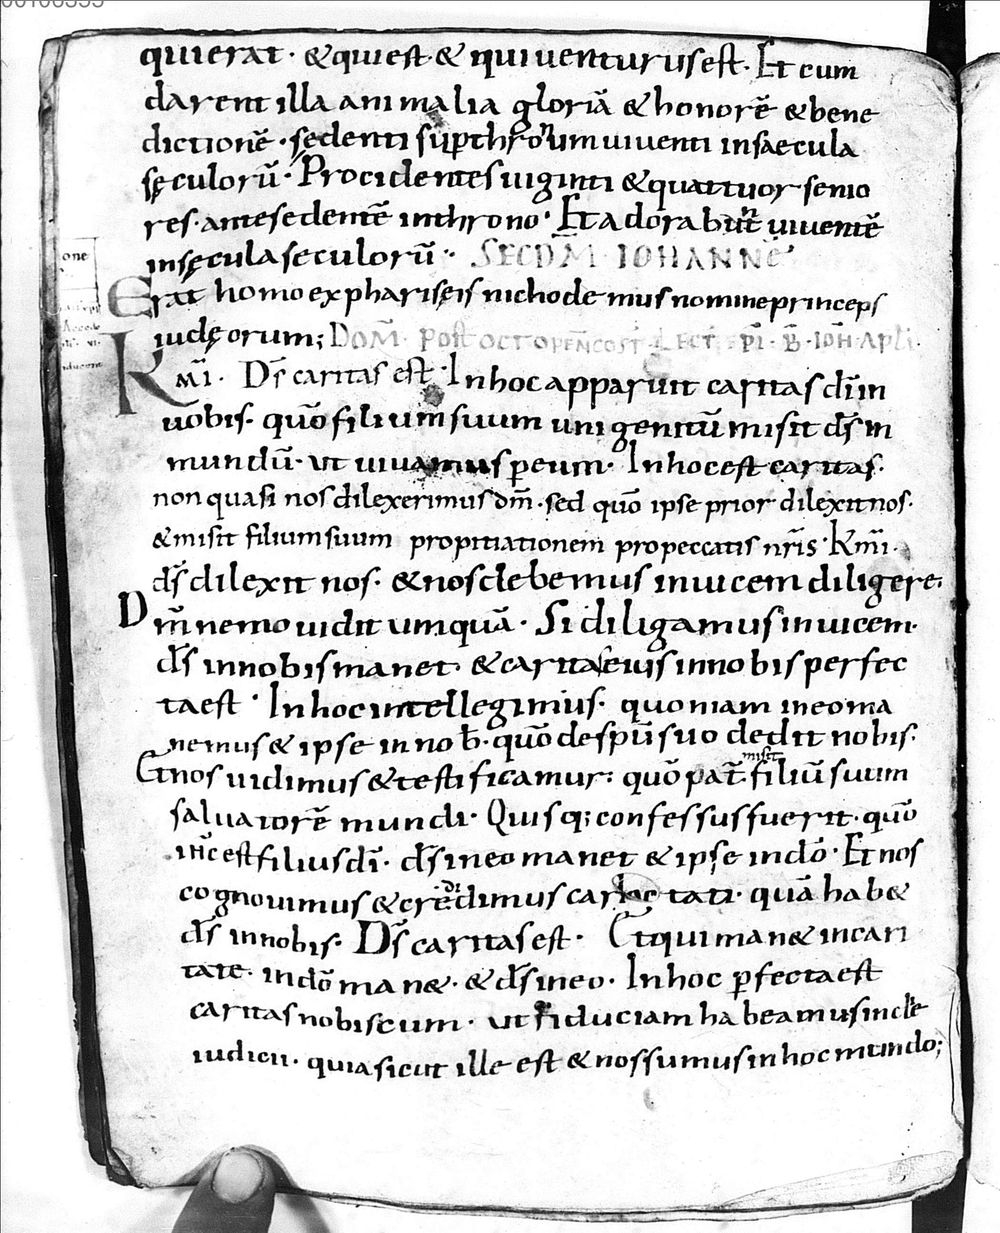 quierat · &quiest · & qui uenturusest · Et cum
darent illa animalia gloriā & honorē & bene
dictionē · sedenti sup thronum uiuenti insaecula
sęculorū · Procidentes uiginti &quattuor senio
res · antesedentē inthrono · Et adorabunt uiuentē
insęcula seculorū · SECDM IOHANNE
Erat homo ex pharisęis nichodemus nomine princeps
iudęorum; DOM̄ · post OCT PENCOST LECT · EPI · B · IOH APLI
Kmi · Ds̄ caritas est · Inhoc apparuit caritas dī in
nobis · quō filium suum unigenitū misit ds̄ in
mundū · ut uiuamus p eum · Inhocest caritas ·
non quasi nos dilexerimus dm̄ · sed quō ipse prior dilexit nos ·
&misit filium suum propitiationem propeccatis nr̄is · Kmi ·
ds̄ dilexit nos · &nos debemus inuicem diligere ·
Dm̄ nemo uidit umquā · Si diligamus inuicem ·
ds̄ innobis manet · &caritas eius innobis perfec
taest · Inhoc intellegimus · quoniam ineo ma
nemus & ipse in nob̄ · quō despū suo dedit nobis ·
Etnos uidimus &testificamur : quō pat̄ misit filiū suum
saluatorē mundi · Quisq; confessus fuerit · quō
ih̄c est filius dī · ds̄ ineo manet & ipse indō · Et nos
cognouimus & credidimus caritati · quā hab&
ds̄ innobis · Ds̄ caritas est · Etqui man& incari
tate · indō man& · & ds̄ ineo · Inhoc pfectaest
caritas nobiscum · ut fiduciam habeamus indie
iudicii · quia sicut ille est & nos sumus inhoc mundo;